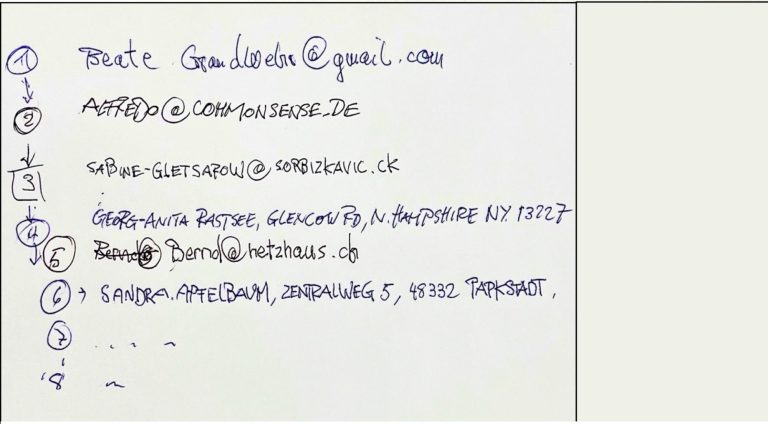 1 Beate Grandwehr@gmail.com
2 ALFREDO@COMMONSENSE_DE
3 SABINE-GLETSAROW@SORBIZKAVIC.CK
4 GEORG-ANITA RASTSEE, GLENCOW RD, N.HAMPSHIRE NY. 13227
5 Bernd@hetzhaus.ch
6 → SANDRA.APFELBAUM, ZENTRALWEG 5, 48332 PARKSTADT,
7 . . . . ~
'8 ~